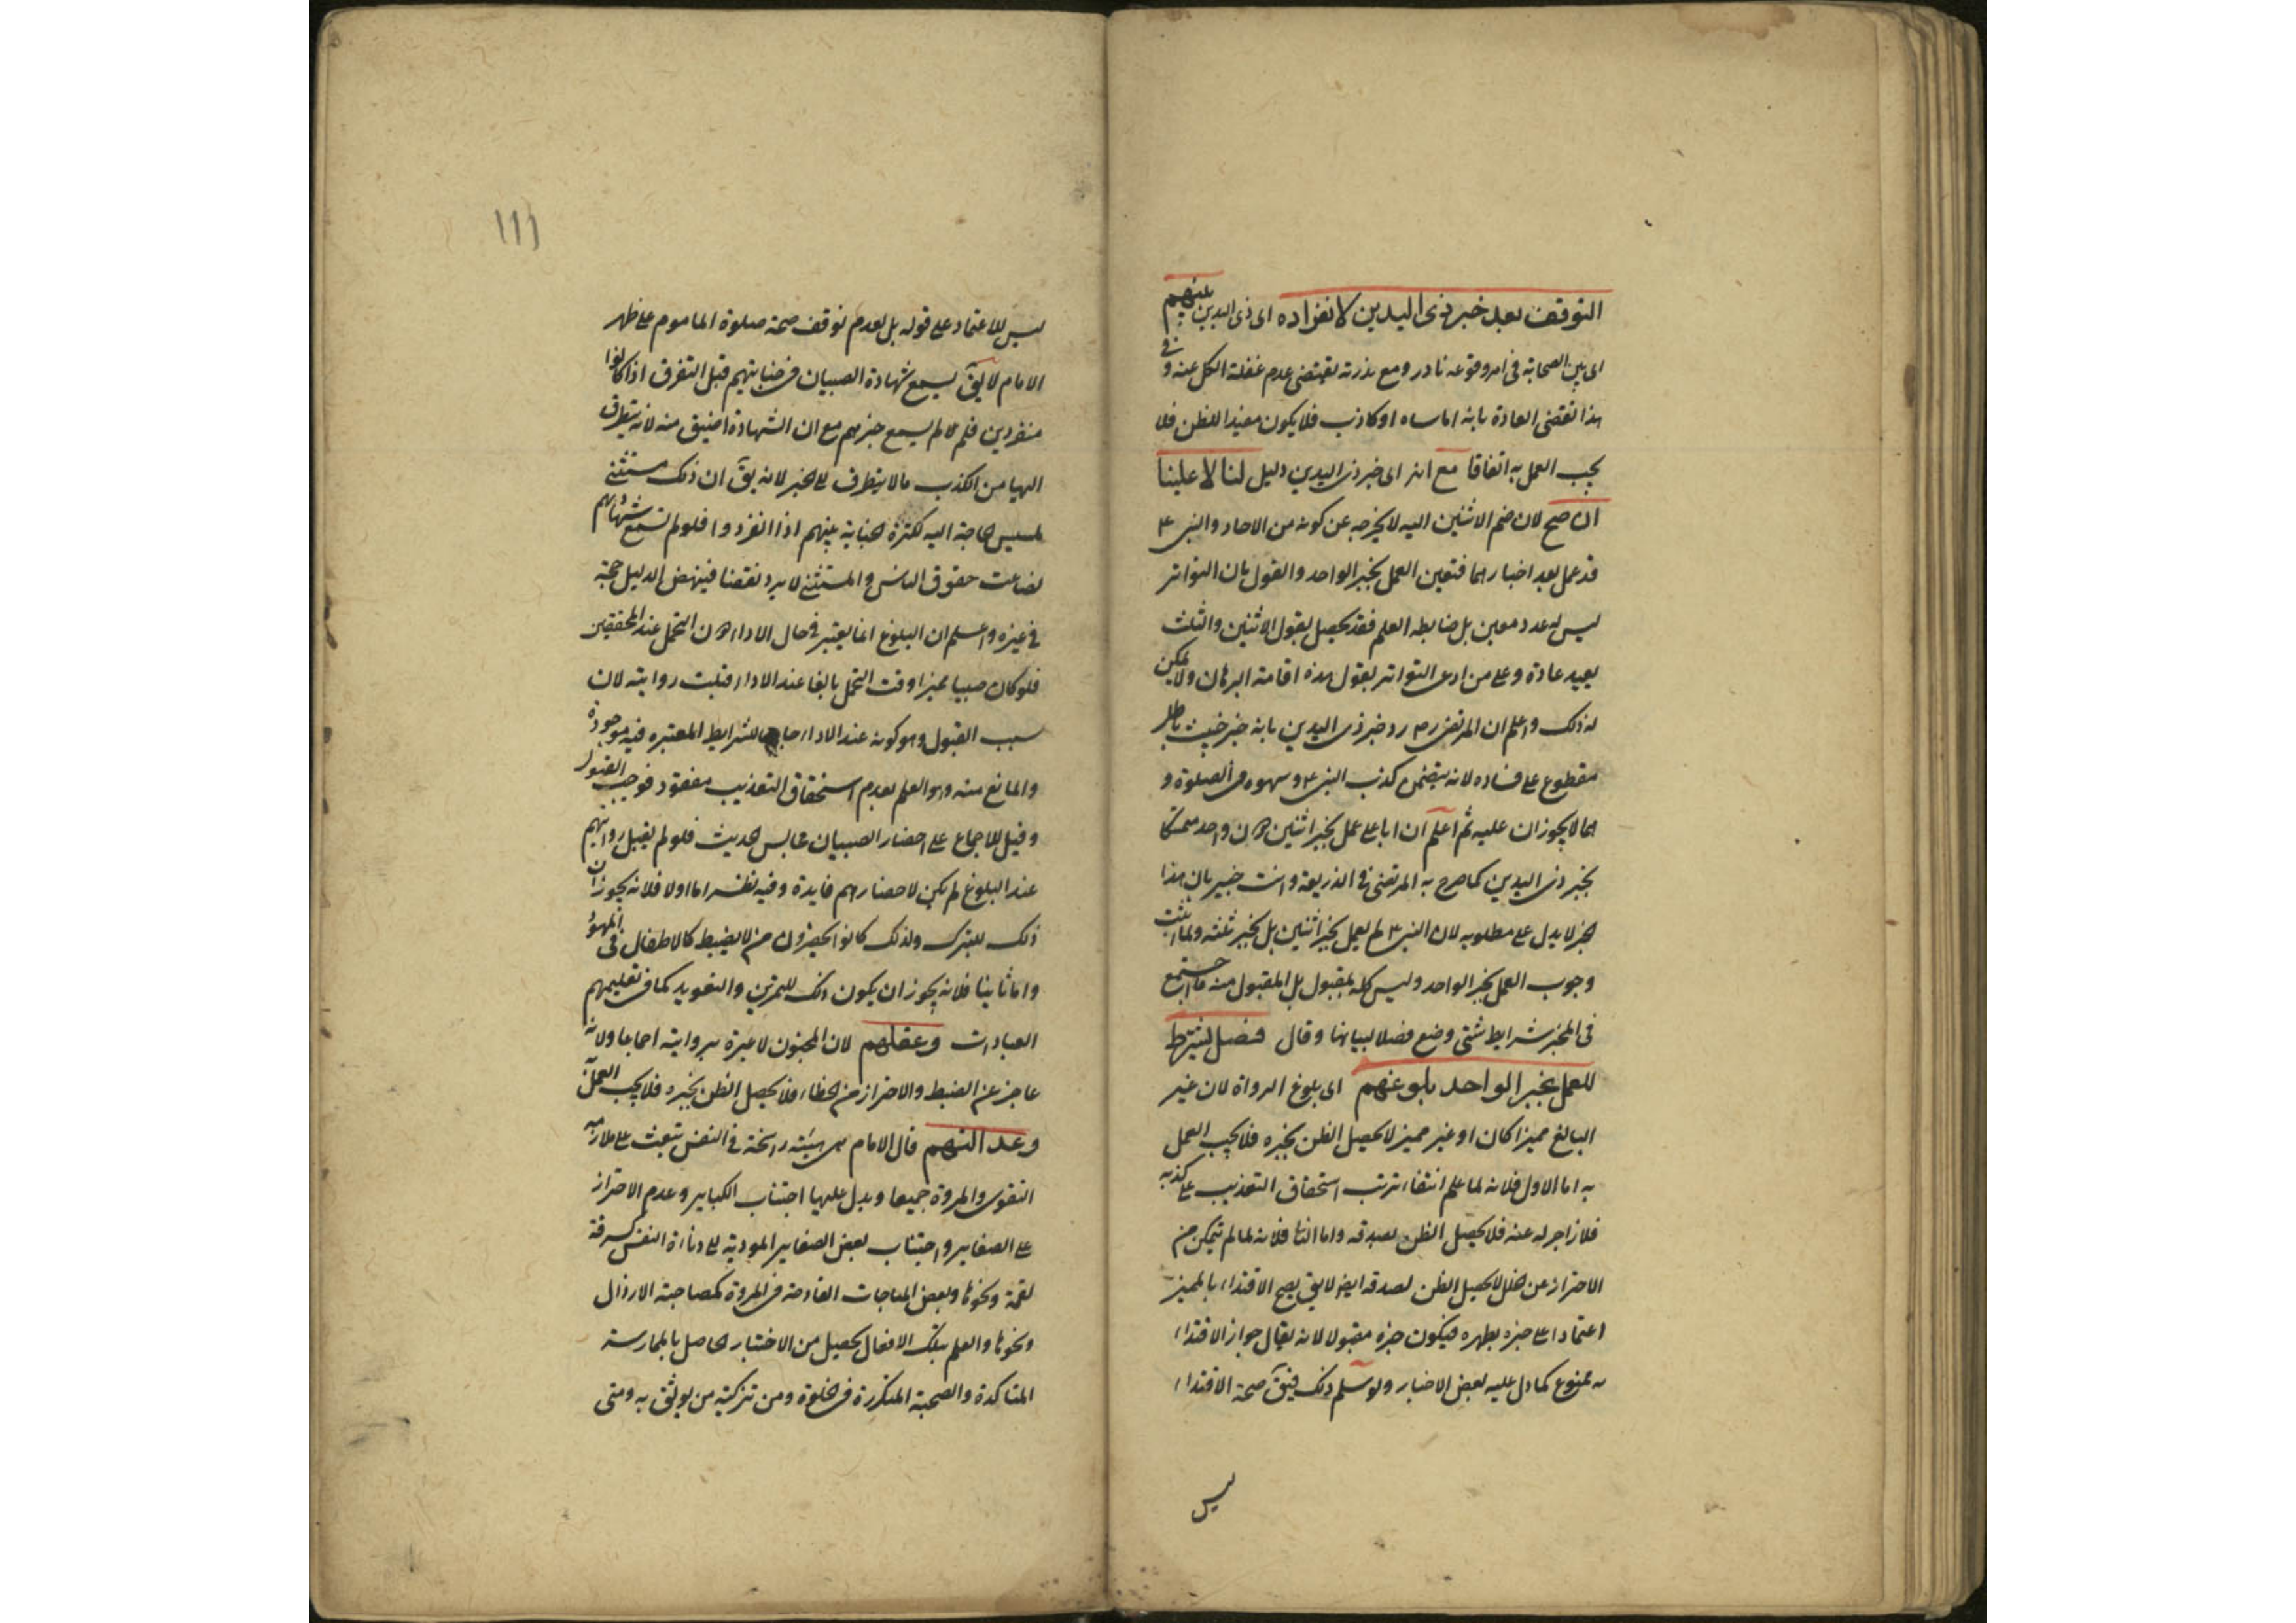 التوقف بعد خبر ذى اليدين لانفراده اى ذى اليدين عنهم
اى بين الصحابة فى امر وقوعه نادر ومع ندرته يقتضى عدم غفلة الكل عنه و فى
هذا تقضى العادة بانه اما ساه او كاذب فلا يكون مفيدا للظن فلا
يجب العمل به اتفاقا مع انه اى خبر ذى اليدين دليل لنا لا علينا
ان صح لان ضم الاثنين اليه لا يخرجه عن كونه من الاحاد والنبى ع
قد عمل بعد اخبارهما فتعين العمل بخبر الواحد والقول بان التواتر
ليس له عدد معين بل ضابطه العلم فقد يحصل بقول الاثنين والثلث
بعيد عادة وعلى من ادعى التواتر بقول هذه اقامة البرهان ولا يمكن
له ذلك واعلم ان المرتضى رد خبر ذى اليدين بانه خبر خبيث باطل
مقطوع على فساده لانه يتضمن كذب النبى ع وسهوه فى الصلوة و
هما لا يجوزان عليه ثم اعلم ان ابا على عمل بخبر اثنين دون واحد متمسكا
بخبر ذى اليدين كما صرح به المرتضى فى الذريعة وانت خبير بان هذا
الخبر لا يدل على مطلوبه لان النبى ع لم يعمل بخبر اثنين بل بخبر ثلثه ولما اثبت
وجوب العمل بخبر الواحد وليس كله بمقبول بل المقبول منه ما اجتمع
فى المخبر شرايط شتى وضع فصلا لبيانها وقال فصل يشترط
للعمل بخبر الواحد بلوغهم اى بلوغ الرواة لان غير
البالغ مميزا كان او غير مميز لا يحصل الظن بخبره فلا يجب العمل
به اما الاول فلانه لما علم انتفاء ترتب استحقاق التعذيب على كذبه
فلا زاجر له عنه فلا يحصل الظن بصدقه واما الثانى فلانه لما لم يتمكن من
الاحتراز عن الخلل لا يحصل الظن بصدقه ايضا لا يق يصح الاقتداء بالمميز
اعتمادا على خبره بطهره فيكون خبره مقبولا لانه يقال جواز الاقتداء
به ممنوع كما دل عليه بعض الاخبار ولو سلم ذلك فيق صحة الاقتداء
ليس
١١١
ليس للاعتماد على قوله بل لعدم توقف صحة صلوة الماموم على طهر
الامام لا يق يسمع شهادة الصبيان فى جنايتهم قبل التفرق اذا كانوا
منفردين فلم لا يسمع خبرهم مع ان الشهادة اضيق منه لانه يتطرق
اليها من الكذب ما لا يتطرق الى الخبر لانه يق ان ذلك مستثنى
لمسيس الحاجة اليه لكثرة الجناية بينهم اذا انفردوا فلو لم تسمع شهادتهم
لضاعت حقوق الناس والمستثنى لا يرد نقضا فينهض الدليل حجة
فى غيره واعلم ان البلوغ انما يعتبر فى حال الاداء دون التحمل عند المحققين
فلو كان صبيا مميزا وقت التحمل بالغا عند الاداء قبلت روايته لان
سبب القبول وهو كونه عند الاداء جامعا للشرايط المعتبره فيه موجودة
والمانع منه وهو العلم بعدم استحقاق التعذيب مفقود فوجب القبول
وقيل للاجماع على احضار الصبيان مجالس الحديث فلو لم يقبل روايتهم
عند البلوغ لم يكن لاحضارهم فايدة وفيه نظر اما اولا فلانه يجوز ان
ذلك للتبرك ولذلك كانوا يحضرون من لا يضبط كالاطفال فى المهود
واما ثانيا فلانه يجوز ان يكون ذلك للتمرين والتعويد كما فى تعليمهم
العبادات وعقلهم لان المجنون لا عبرة بروايته اجماعا ولانه
عاجز عن الضبط والاحتراز من الخطاء فلا يحصل الظن بخبره فلا يجب العمل به
وعدالتهم قال الامام هى هيئة راسخة فى النفس تبعث على ملازمة
التقوى والمروة جميعا ويدل عليها اجتناب الكباير وعدم الاصرار
على الصغاير واجتناب بعض الصغاير المودية الى دناءة النفس كسرقة
لقمة ونحوها وبعض المباحات القادحة فى المروة كمصاحبة الارذال
ونحوها والعلم بتلك الافعال يحصل من الاختبار الحاصل بالممارسة
المتاكدة والصحبة المتكررة فى الخلوة ومن تزكية من يوثق به ومتى